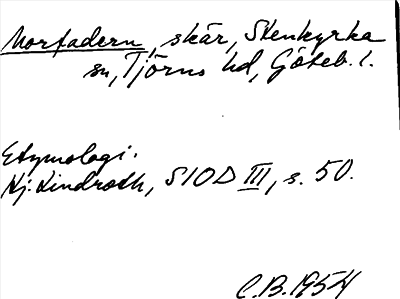 Morfadern, skär, Stenkyrka
sn, Tjörns hd, Göteb. l.
Etymologi.
Hj. Lindroth, SIOD III, s. 50.
C.B. 1954